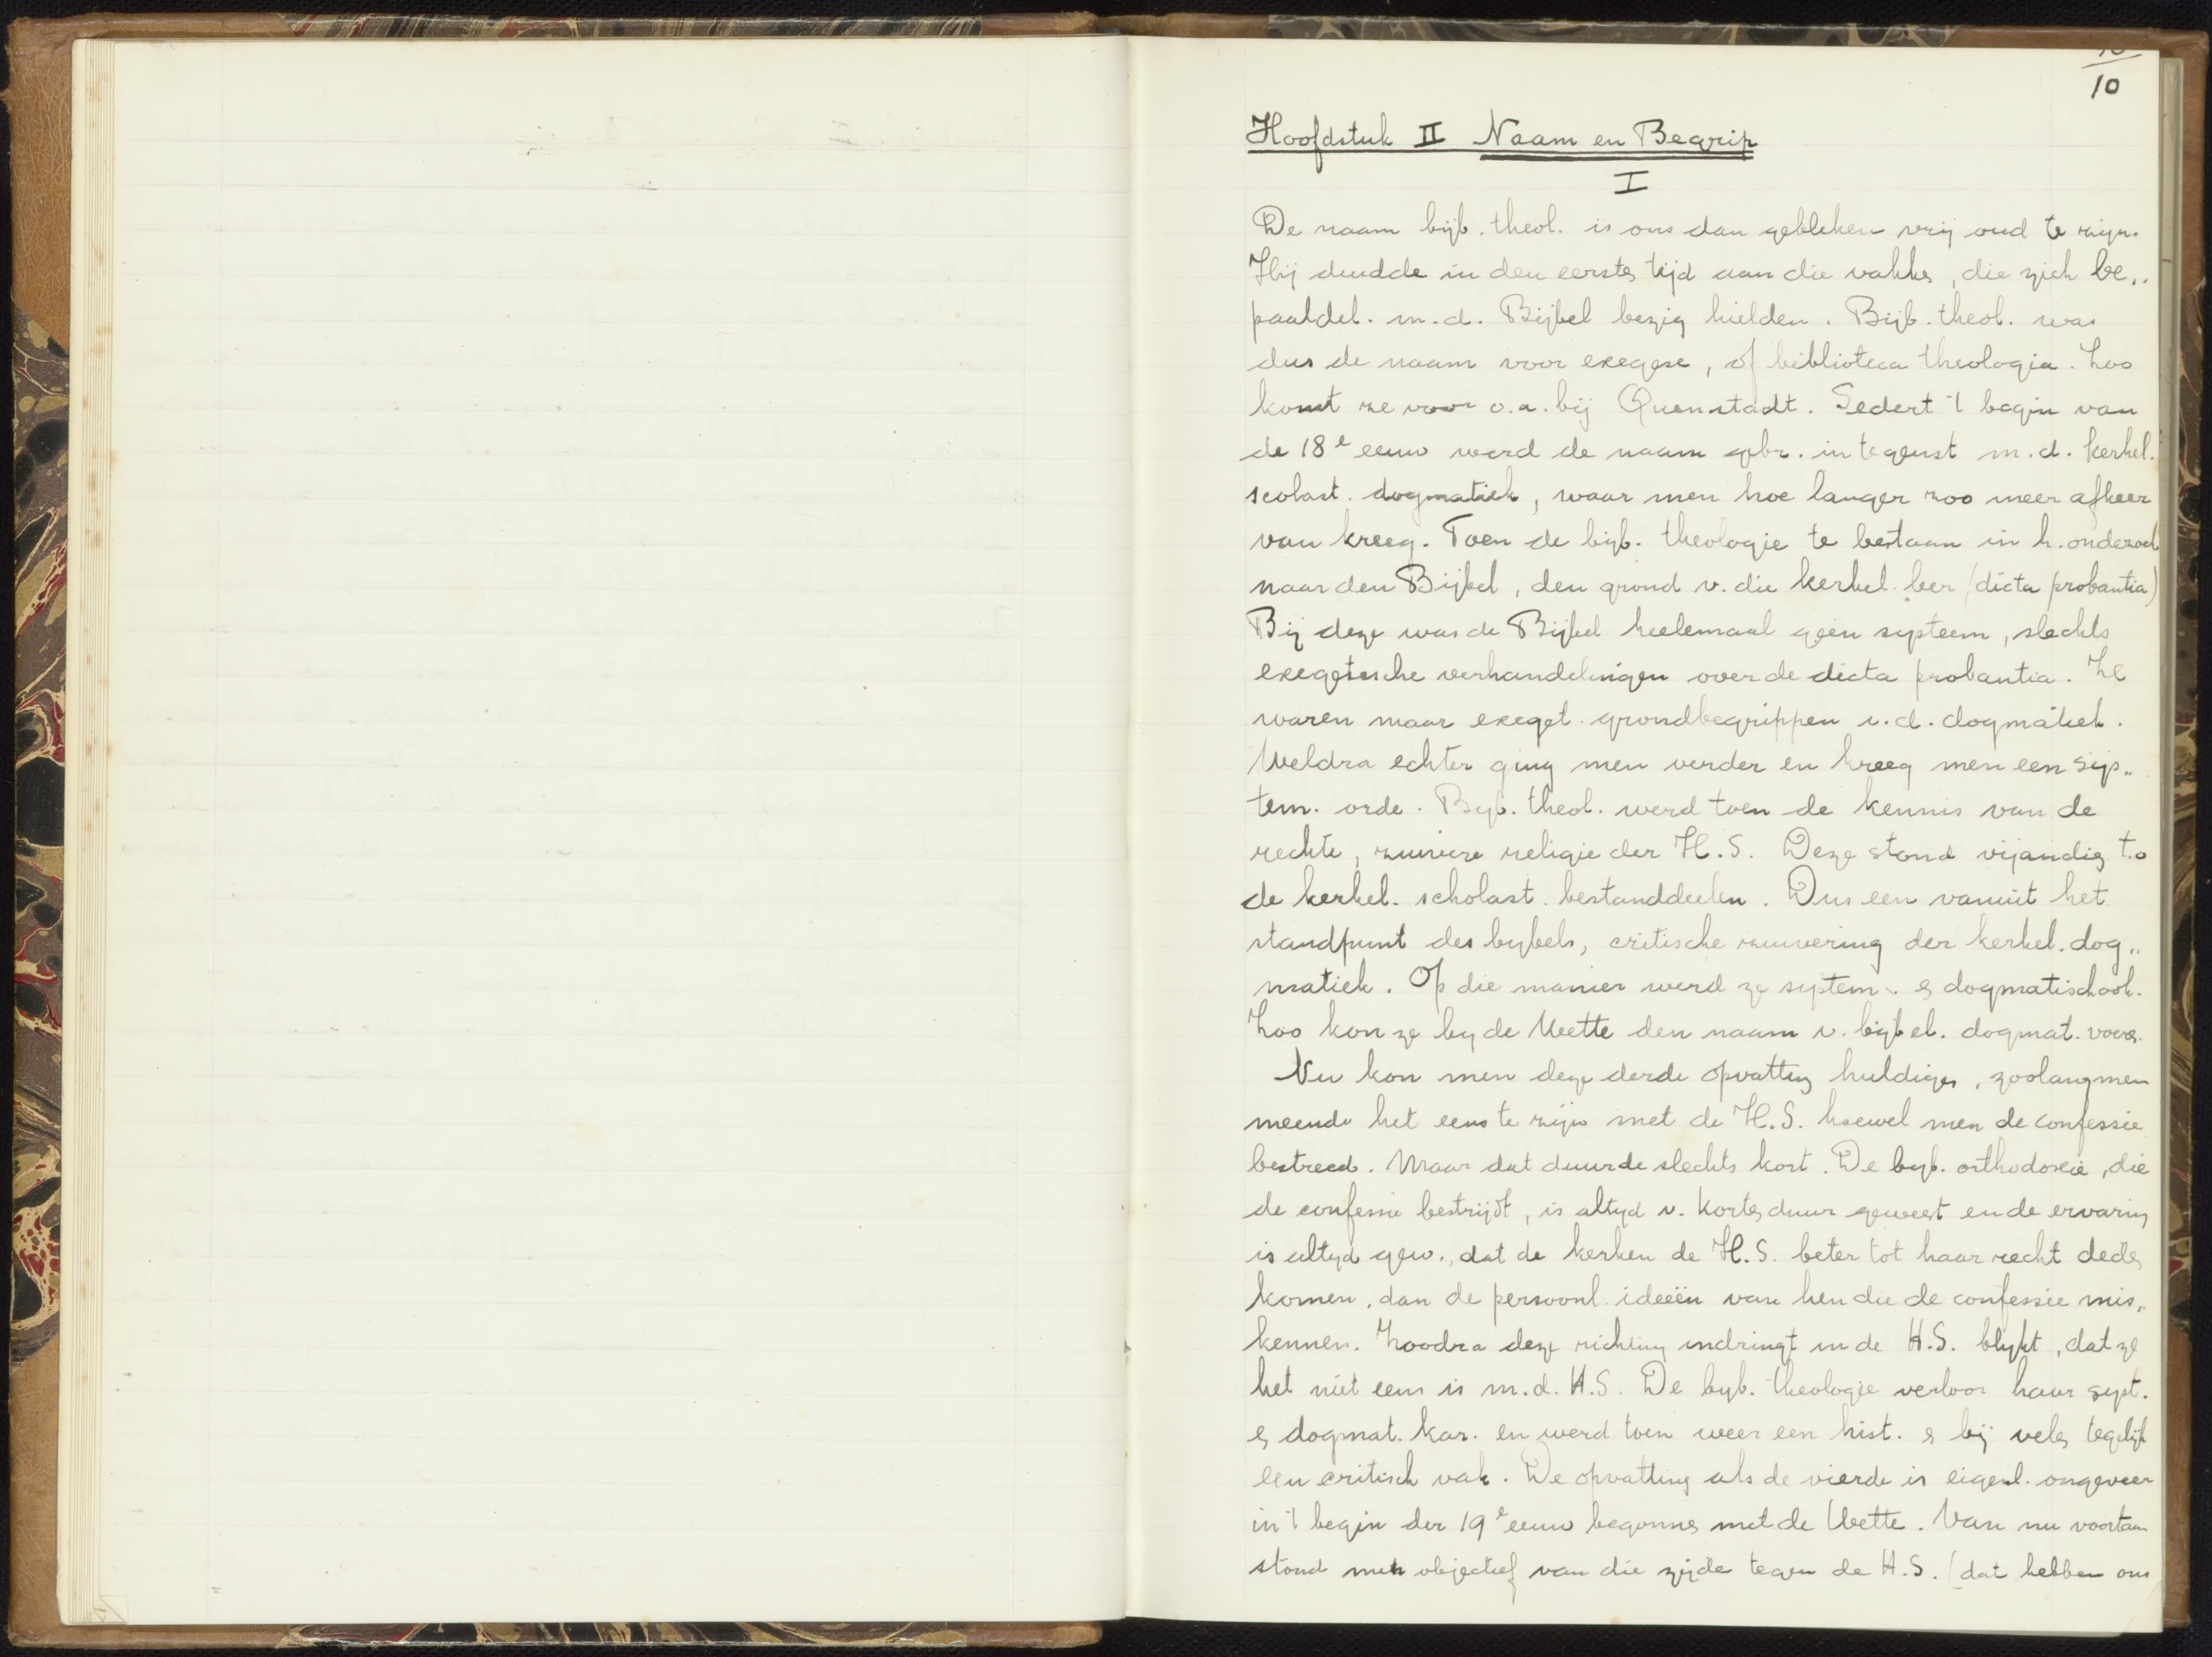 10
Hoofdstuk II Naam en Begrip
I
De naam bijb. theol. is ons dan gebleken vrij oud te zijn.
Hij duidde in den eersten tijd aan die vakken, die zich be„
paaldel. m.d. Bijbel bezig hielden. Bijb. theol. was
dus de naam voor exegese, of biblioteca theologia. Zoo
komt ze voor o.a. bij Quenstadt. Sedert 't begin van
de 18e eeuw werd de naam gebr. in tegenst m.d. kerkel.
scolast. dogmatiek, waar men hoe langer zoo meer afkeer
van kreeg. Toen de bijb. theologie te bestaan in h. onderzoek
naar den Bijbel, den grond v. die kerkel. leer (dicta probantia)
Bij deze was de Bijbel heelemaal geen systeem, slechts
exegetische verhandelingen over de dicta probantia. Ze
waren maar exeget. grondbegrippen v.d. dogmatiek.
Weldra echter ging men verder en kreeg men een sys„
tem. orde. Bijb. theol. werd toen de kennis van de
rechte, zuivere religie der H.S. Deze stond vijandig t.o
de kerkel. scholast. bestanddeelen. Dus een vanuit het
standpunt des bybels, critische zuivering der kerkel. dog„
matiek. Op die manier werd ze system. & dogmatisch ook.
Zoo kon ze by de Wette den naam v. bijbel. dogmat. voeren.
Nu kon men deze derde opvatting huldigen, zoolang men
meende het eens te zijn met de H.S. hoewel men de confessie
bestreed. Maar dat duurde slechts kort. De byb. orthodoxie, die
de confessie bestrijdt, is altyd v. korten duur geweest en de ervaring
is altyd gew., dat de kerken de H.S. beter tot haar recht deden
komen, dan de persoonl. ideeën van hen die de confessie mis„
kennen. Zoodra deze richting indringt in de H.S. blykt, dat ze
het niet eens is m.d. H.S. De byb. theologie verloor haar syst.
& dogmat. kar. en werd toen weer een hist. & bij velen tegelijk
een critisch vak. De opvatting als de vierde is eigenl. ongeveer
in 't begin der 19e eeuw begonnen met de Wette. Van nu voortaan
stond men objectief van die zijde tegen de H.S. (dat hebben ons